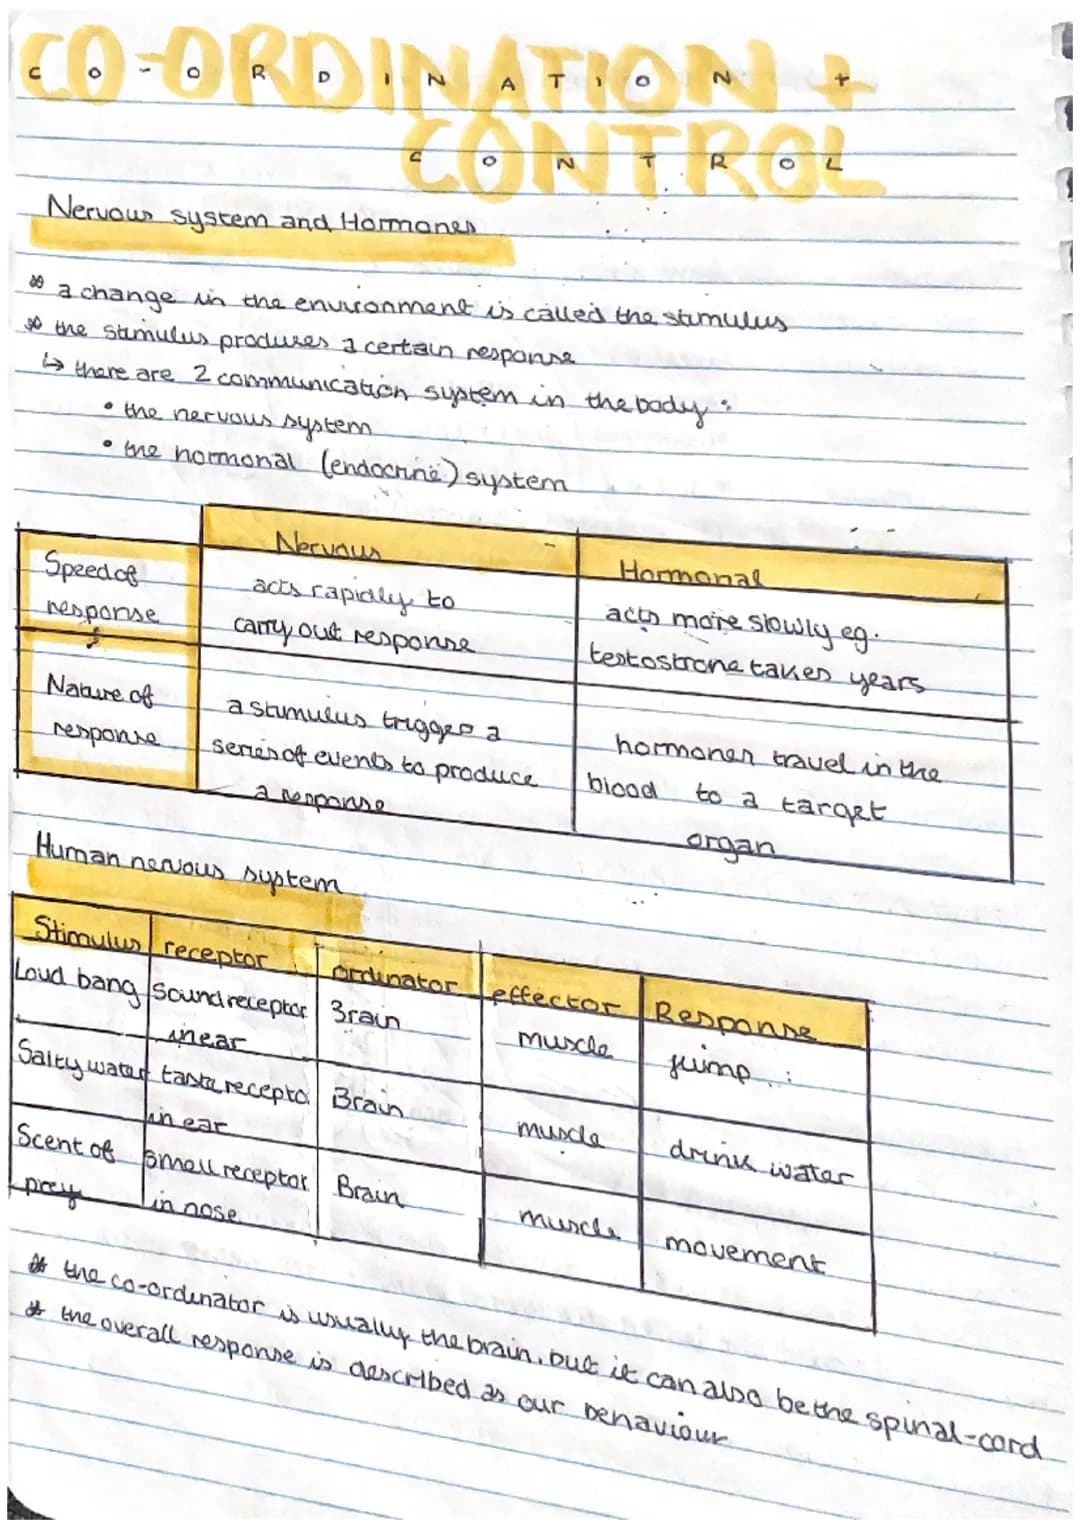 CO-ORDINATION +
CONTROL
Nervous system and Hormones
a change in the environment is called the stimulus
the stimulus produces a certain response
↳ there are 2 communication system in the body :
• the nervous system
• the hormonal (endocrine) system
Nervous
Hormonal
Speed of
response
acts rapidly to
carry out response
acts more slowly eg.
testostrone takes years
Nature of
response
a stimulus trigges a
series of events to produce
a response
hormones travel in the
blood to a target
organ
Human nervous system
Stimulus receptor ordinator effector Response
Loud bang Sound receptor Brain muscle jump
in ear
Salty water taste recepto Brain muscle drink water
in ear
Scent of smell receptor Brain muscle movement
prey in nose
* the co-ordinator is usually the brain, but it can also be the spinal-cord
* the overall response is described as our behaviour